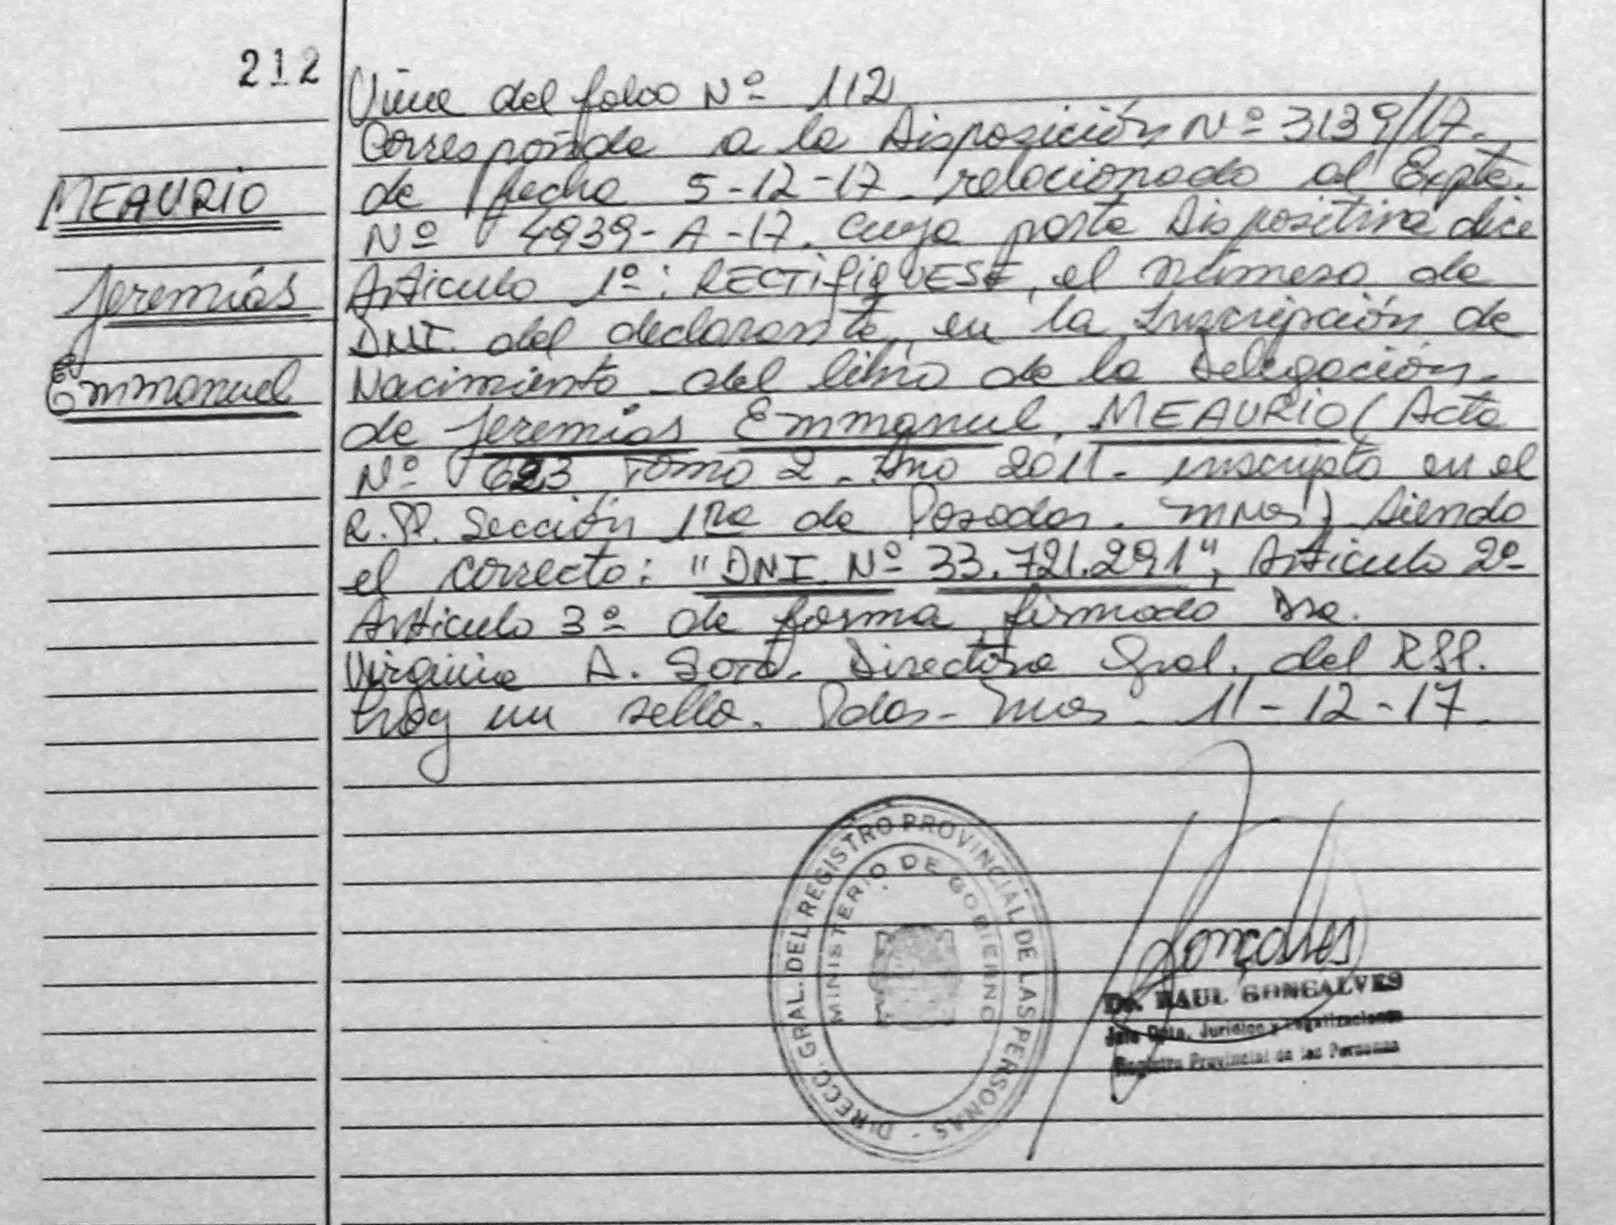 212
MEAURIO
Jeremías
Emmanuel
Viene del folio Nº 112
Corresponde a la Disposición Nº 3139/17.
de fecha 5-12-17 relacionado al Expte.
Nº 4939-A-17. cuya parte Dispositiva dice
Articulo 1º: RECTIFIQUESE, el número de
DNI. del declarante, en la Inscripción de
Nacimiento del libro de la Delegación.
de Jeremías Emmanuel, MEAURIO (Acta
Nº 623 Tomo 2. Año 2011. inscripto en el
R.PP. Sección 1ra de Posadas. Mnes) siendo
el correcto: "DNI. Nº 33.721.291", Articulo 2º
Articulo 3º de forma firmado Dra.
Virginia A. Soto. Directora Gral. del RPP.
Hay un sello. Pdas-Mnes. 11-12-17.
DIRECC. GRAL. DEL REGISTRO PROVINCIAL DE LAS PERSONAS -
MINISTERIO DE GOBIERNO
Gonçalves
Dr. RAUL GONCALVES
Jefe Dpto. Jurídico y Legalizaciones
Registro Provincial de las Personas